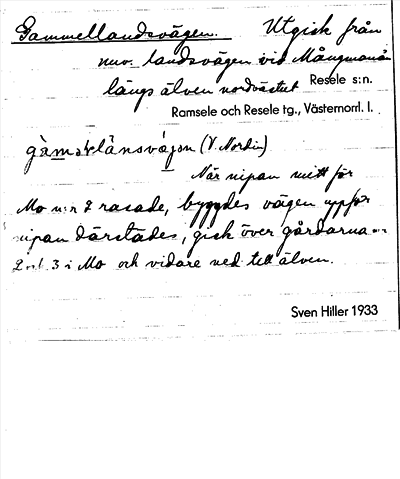 Gammellandsvägen. Utgick från
nuv. landsvägen vid Mångmanå
längs älven nordväst Resele s:n.
Ramsele och Resele tg., Västernorrl. l.
(V. Nordin)
När nipan mitt för
Mo n:r 2 rasade, byggdes vägen uppför
nipan därstädes, gick över gårdarna
2 och 3 i Mo och vidare ned till älven.
Sven Hiller 1933